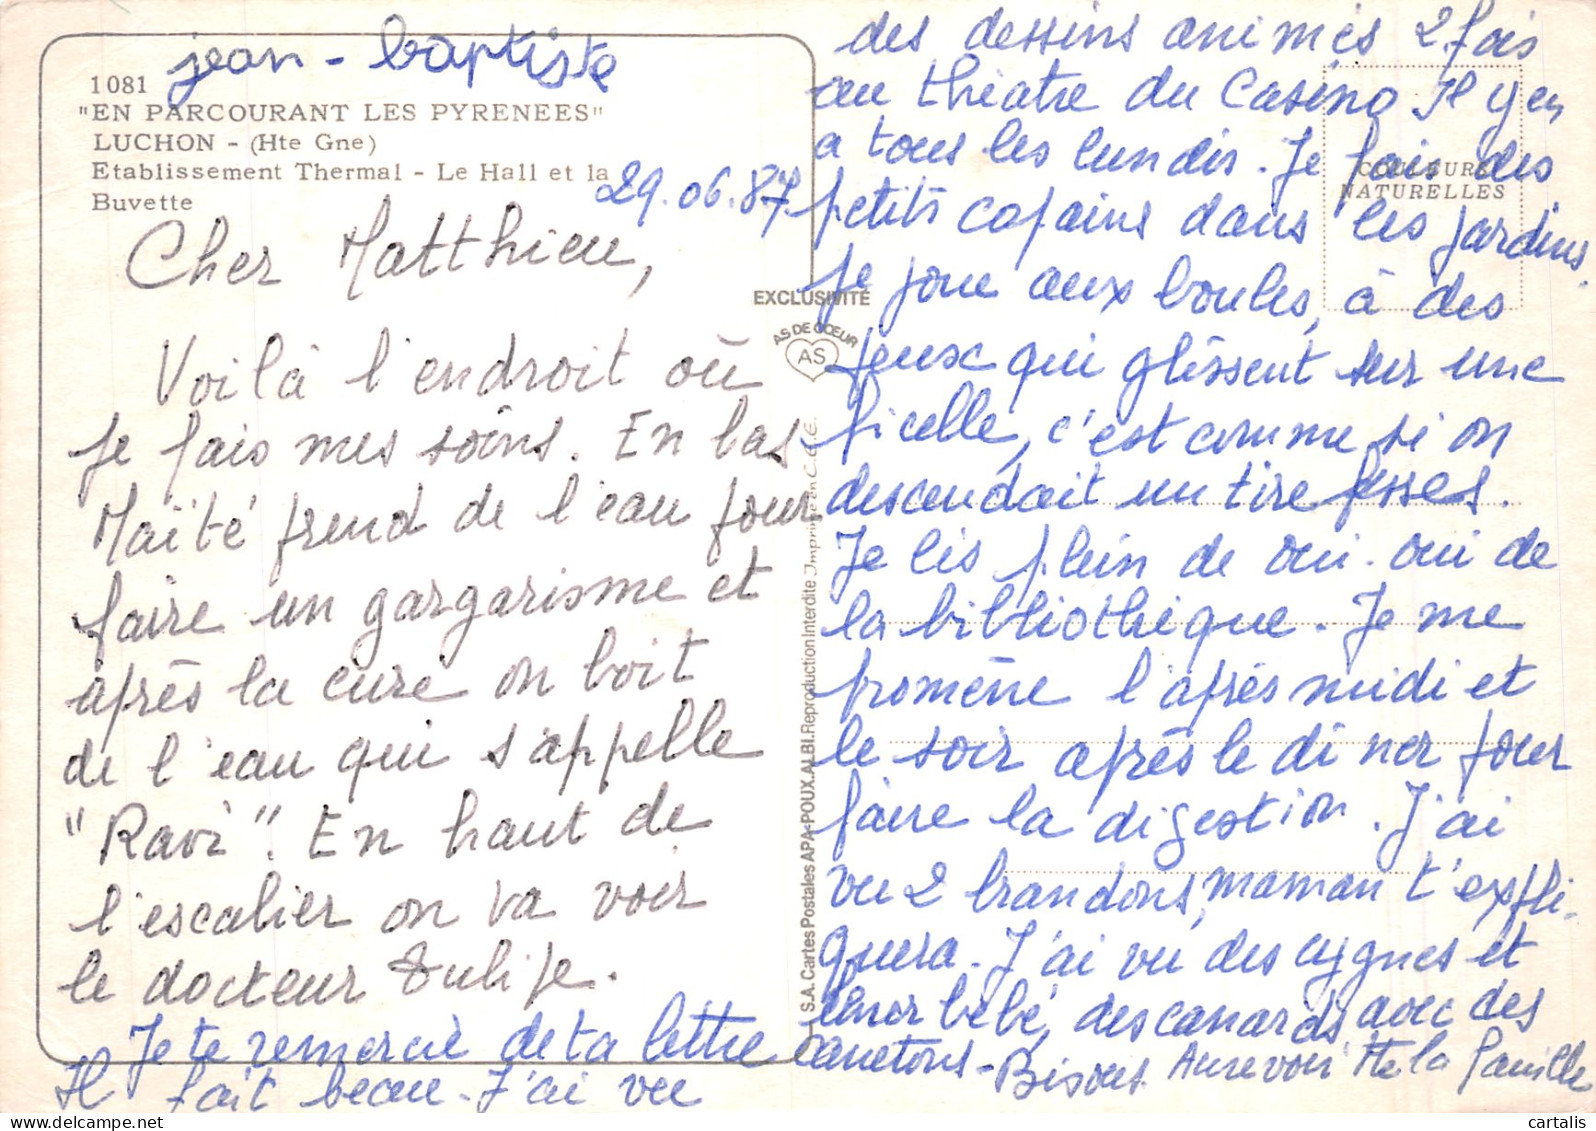 jean-baptiste
1081
"EN PARCOURANT LES PYRENEES"
LUCHON - (Hte Gne)
Etablissement Thermal - Le Hall et la
Buvette
29.06.87
Cher Matthieu,
Voilà l'endroit où
je fais mes soins. En bas
Maïté prend de l'eau pour
faire un gargarisme et
après la cure on boit
de l'eau qui s'appelle
"Ravi". En haut de
l'escalier on va voir
le docteur Tulipe.
Je te remercie de ta lettre
Il fait beau. J'ai vu
des dessins animés 2 fois
au théatre du Casino Il y en
a tous les lundis. Je fais des
petits copains dans les jardins.
je joue aux boules, à des
jeux qui glissent sur une
ficelle, c'est comme si on
descendait un tire fesses.
Je lis plein de oui-oui de
la bibliothèque. Je me
promène l'après midi et
le soir après le dîner pour
faire la digestion. J'ai
vu 2 brandons, maman t'expli-
quera. J'ai vu des cygnes et
leur bébé, des canards avec des
canetons - Bisous Aurevoir Tte la famille
COULEURS
NATURELLES
EXCLUSIVITÉ
AS DE CŒUR
AS
S.A. Cartes Postales APA-POUX. ALBI. Reproduction Interdite Imprimé en C.E.E.
cartalis